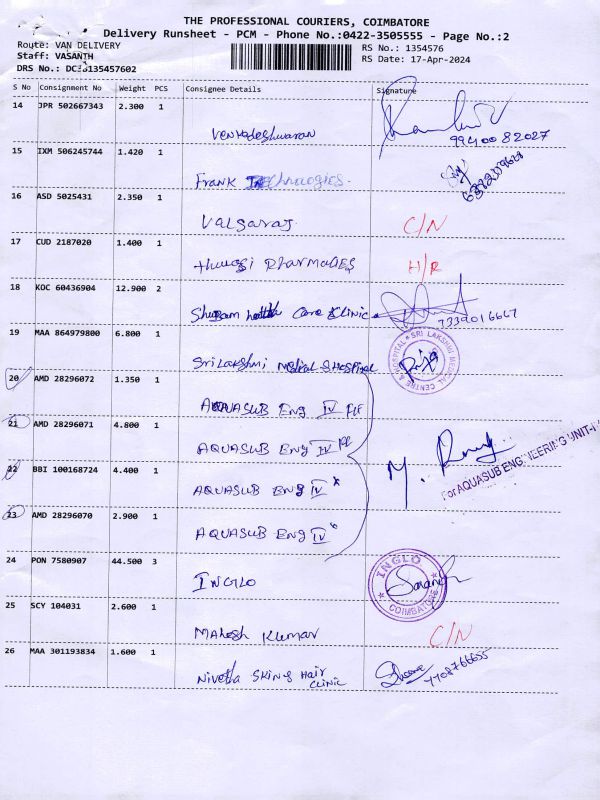 THE PROFESSIONAL COURIERS, COIMBATORE
Delivery Runsheet - PCM - Phone No.:0422-3505555 - Page No.:2
Route: VAN DELIVERY
RS No.: 1354576
Staff: VASANTH
RS Date: 17-Apr-2024
DRS No.: 135457602
S No Consignment No Weight PCS Consignee Details Signature
14 JPR 502667343 2.300 1
Venkadeshwaran
9940082027
15 IXM 506245744 1.420 1
Frank Technologies.
16 ASD 5025431 2.350 1
Valsaraj. C/N
17 CUD 2187020 1.400 1
H/R
18 KOC 60436904 12.900 2
Care Clinic
7339016667
19 MAA 864979800 6.800 1
Sri Lakshmi Medical Hospital
SRI LAKSHMI MEDICAL CENTRE & HOSPITAL
20 AMD 28296072 1.350 1
AQUASUB Eng IV
21 AMD 28296071 4.800 1
AQUASUB Eng IV
22 BBI 100168724 4.400 1
For AQUASUB ENGINEERING UNIT-I
AQUASUB Eng IV
23 AMD 28296070 2.900 1
AQUASUB Eng IV
24 PON 7580907 44.500 3
INGLO
INGLO COIMBATORE
25 SCY 104031 2.600 1
Mahesh Kumar C/N
26 MAA 301193834 1.600 1
Nivetha Skin & Hair
Clinic
7708766655